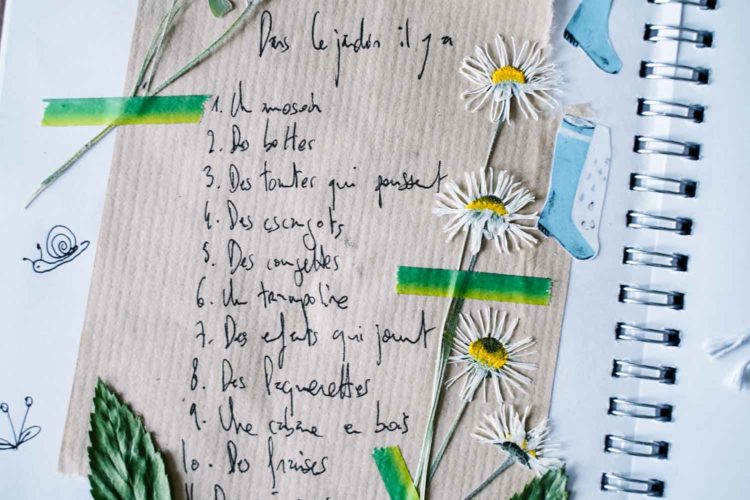 Dans le jardin il y a
1. Un
2. Des bottes
3. Des tomates qui poussent
4. Des escargots
5. Des courgettes
6. Un trampoline
7. Des enfants qui jouent
8. Des Paquerettes
9. Une cabane en bois
10. Des fraises